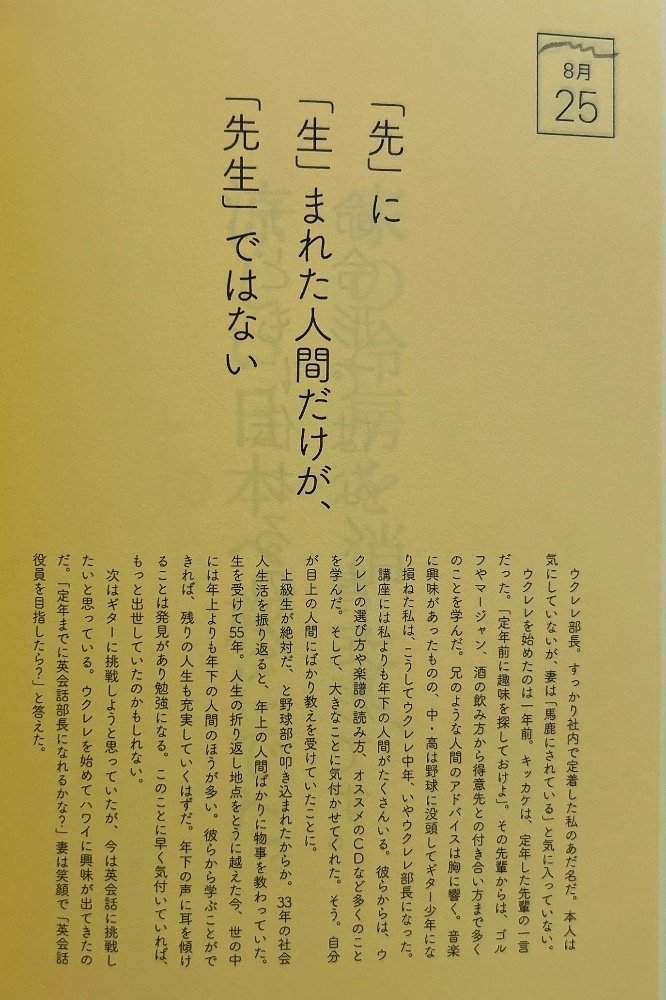 8月
25
「先」に
「生」まれた人間だけが、
「先生」ではない
ウクレレ部長。すっかり社内で定着した私のあだ名だ。本人は
気にしていないが、妻は「馬鹿にされている」と気に入っていない。
ウクレレを始めたのは一年前。キッカケは、定年した先輩の一言
だった。「定年前に趣味を探しておけよ」。その先輩からは、ゴル
フやマージャン、酒の飲み方から得意先との付き合い方まで多く
のことを学んだ。兄のような人間のアドバイスは胸に響く。音楽
に興味があったものの、中・高は野球に没頭してギター少年にな
り損ねた私は、こうしてウクレレ中年、いやウクレレ部長になった。
講座には私よりも年下の人間がたくさんいる。彼らからは、ウ
クレレの選び方や楽譜の読み方、オススメのCDなど多くのこと
を学んだ。そして、大きなことに気付かせてくれた。そう。自分
が目上の人間にばかり教えを受けていたことに。
上級生が絶対だ、と野球部で叩き込まれたからか。33年の社会
人生活を振り返ると、年上の人間ばかりに物事を教わっていた。
生を受けて55年。人生の折り返し地点をとうに越えた今、世の中
には年上よりも年下の人間のほうが多い。彼らから学ぶことがで
きれば、残りの人生も充実していくはずだ。年下の声に耳を傾け
ることは発見があり勉強になる。このことに早く気付いていれば、
もっと出世していたのかもしれない。
次はギターに挑戦しようと思っていたが、今は英会話に挑戦し
たいと思っている。ウクレレを始めてハワイに興味が出てきたの
だ。「定年までに英会話部長になれるかな？」妻は笑顔で「英会話
役員を目指したら？」と答えた。